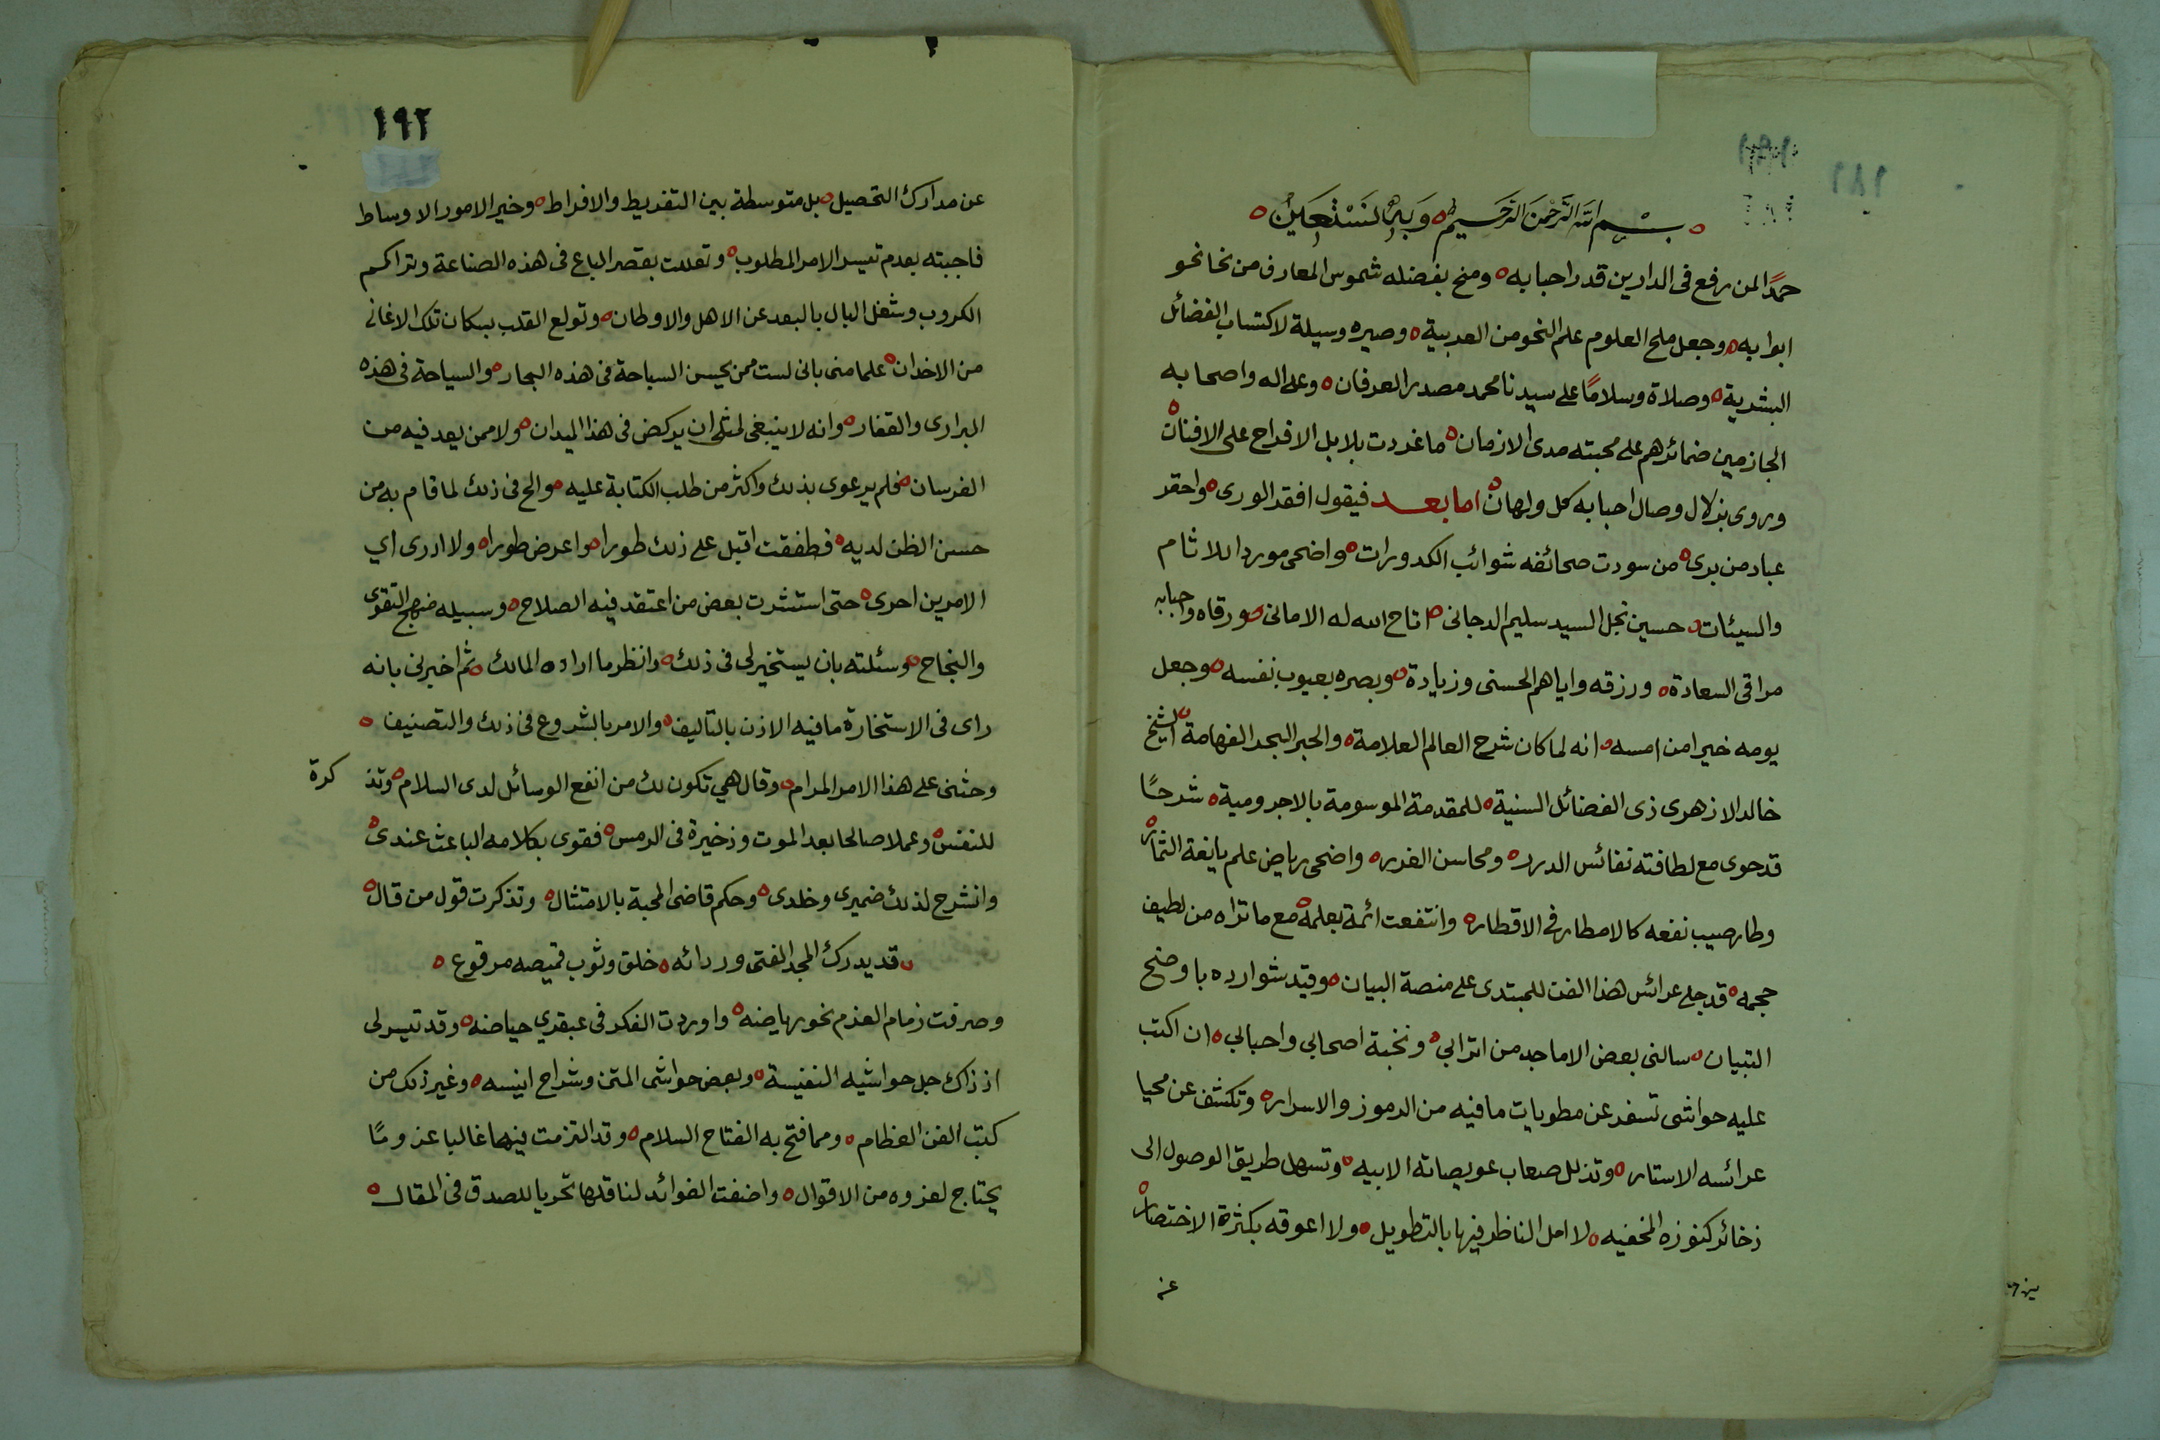 بسم الله الرحمن الرحيم وبه نستعين
حمدًا لمن رفع فى الدارين قدر احبابه ومنح بفضله شموس المعارف من نحا نحو
ابوابه وجعل ملح العلوم علم النحو من العربية وصيره وسيلة لاكتساب الفضائل
البشرية وصلاة وسلامًا على سيدنا محمد مصدر العرفان وعلى اله واصحابه
الجازمين ضمائرهم على محبته مدى الازمان ما غردت بلابل الافراح على الافنان
وروى بزلال وصال احبابه كل ولهان اما بعد فيقول افقر الورى واحقر
عباد من برى من سودت صحائفه شوائب الكدورات واضحى موردا للاثام
والسيئات حسين نجل السيد سليم الدجانى اتاح الله له الامانى ورقاه واحبابه
مراقى السعادة ورزقه واياهم الحسنى وزيادة وبصره بعيوب نفسه وجعل
يومه خيرا من امسه انه لما كان شرح العالم العلامة والحبر البحر الفهامة الشيخ
خالد الازهرى ذى الفضائل السنية للمقدمة الموسومة بالاجرومية شرحًا
قد حوى مع لطافته نفائس الدرر ومحاسن الغرر واضحى رياض علم يانعة الثمار
وطار صيب نفعه كالامطار فى الاقطار وانتفعت ائمة بعلمه مع ما تراه من لطيف
حجمه قد جلى عرائس هذا الفن للمبتدى على منصة البيان وقيد شوارده باوضح
التبيان سالنى بعض الاماجد من اترابي ونخبة اصحابي واحبابي ان اكتب
عليه حواشى تسفر عن مطويات ما فيه من الرموز والاسرار وتكشف عن محيا
عرائسه الاستار وتذلل صعاب عويصاته الابيه وتسهل طريق الوصول الى
ذخائر كنوزه المخفيه لا امل الناظر فيها بالتطويل ولا اعوقه بكثرة الاختصار
عن
١٩٢
عن مدارك التحصيل بل متوسطة بين التفريط والافراط وخير الامور الاوساط
فاجبته بعدم تيسر الامر المطلوب وتعللت بقصر الباع فى هذه الصناعة وتراكم
الكروب وشغل البال بالبعد عن الاهل والاوطان وتولع القلب بسكان تلك الاغانى
من الاخدان علما منى بانى لست ممن يحسن السباحة فى هذه البحار والسياحة فى هذه
البرارى والقفار وانه لا ينبغى لمثلى ان يركض فى هذا الميدان ولا ممن يعد فيه من
الفرسان فلم يرعوى بذلك واكثر من طلب الكتابة عليه والح فى ذلك لما قام به من
حسن الظن لديه فطفقت اقبل على ذلك طورا واعرض طورا ولا ادرى اي
الامرين احرى حتى استشرت بعض من اعتقد فيه الصلاح وسبيله منهج التقوى
والنجاح وسئلته بان يستخير لى فى ذلك وانظر ما اراده المالك ثم اخبرنى بانه
راى فى الاستخارة ما فيه الاذن بالتاليف والامر بالشروع فى ذلك والتصنيف
وحثنى على هذا الامر المرام وقال هي تكون لك من انفع الوسائل لدى السلام وتذكرة
للنفس وعملا صالحا بعد الموت وذخيرة فى الرمس فقوى بكلامه الباعث عندى
وانشرح لذلك ضميرى وخلدى وحكم قاضى المحبة بالامتثال وتذكرت قول من قال
قد يدرك المجد الفتى وردائه خلق وثوب قميصه مرقوع
وصرفت زمام العزم نحو رياضه واوردت الفكر فى عبقري حياضه وقد تيسر لى
اذ ذاك جل حواشيه النفيسة وبعض حواشى المتن وشراح انيسه وغير ذلك من
كتب الفن العظام ومما فتح به الفتاح السلام وقد التزمت فيها غالبا عزو ما
يحتاج لعزوه من الاقوال واضفت الفوائد لناقلها تحريا للصدق فى المقال